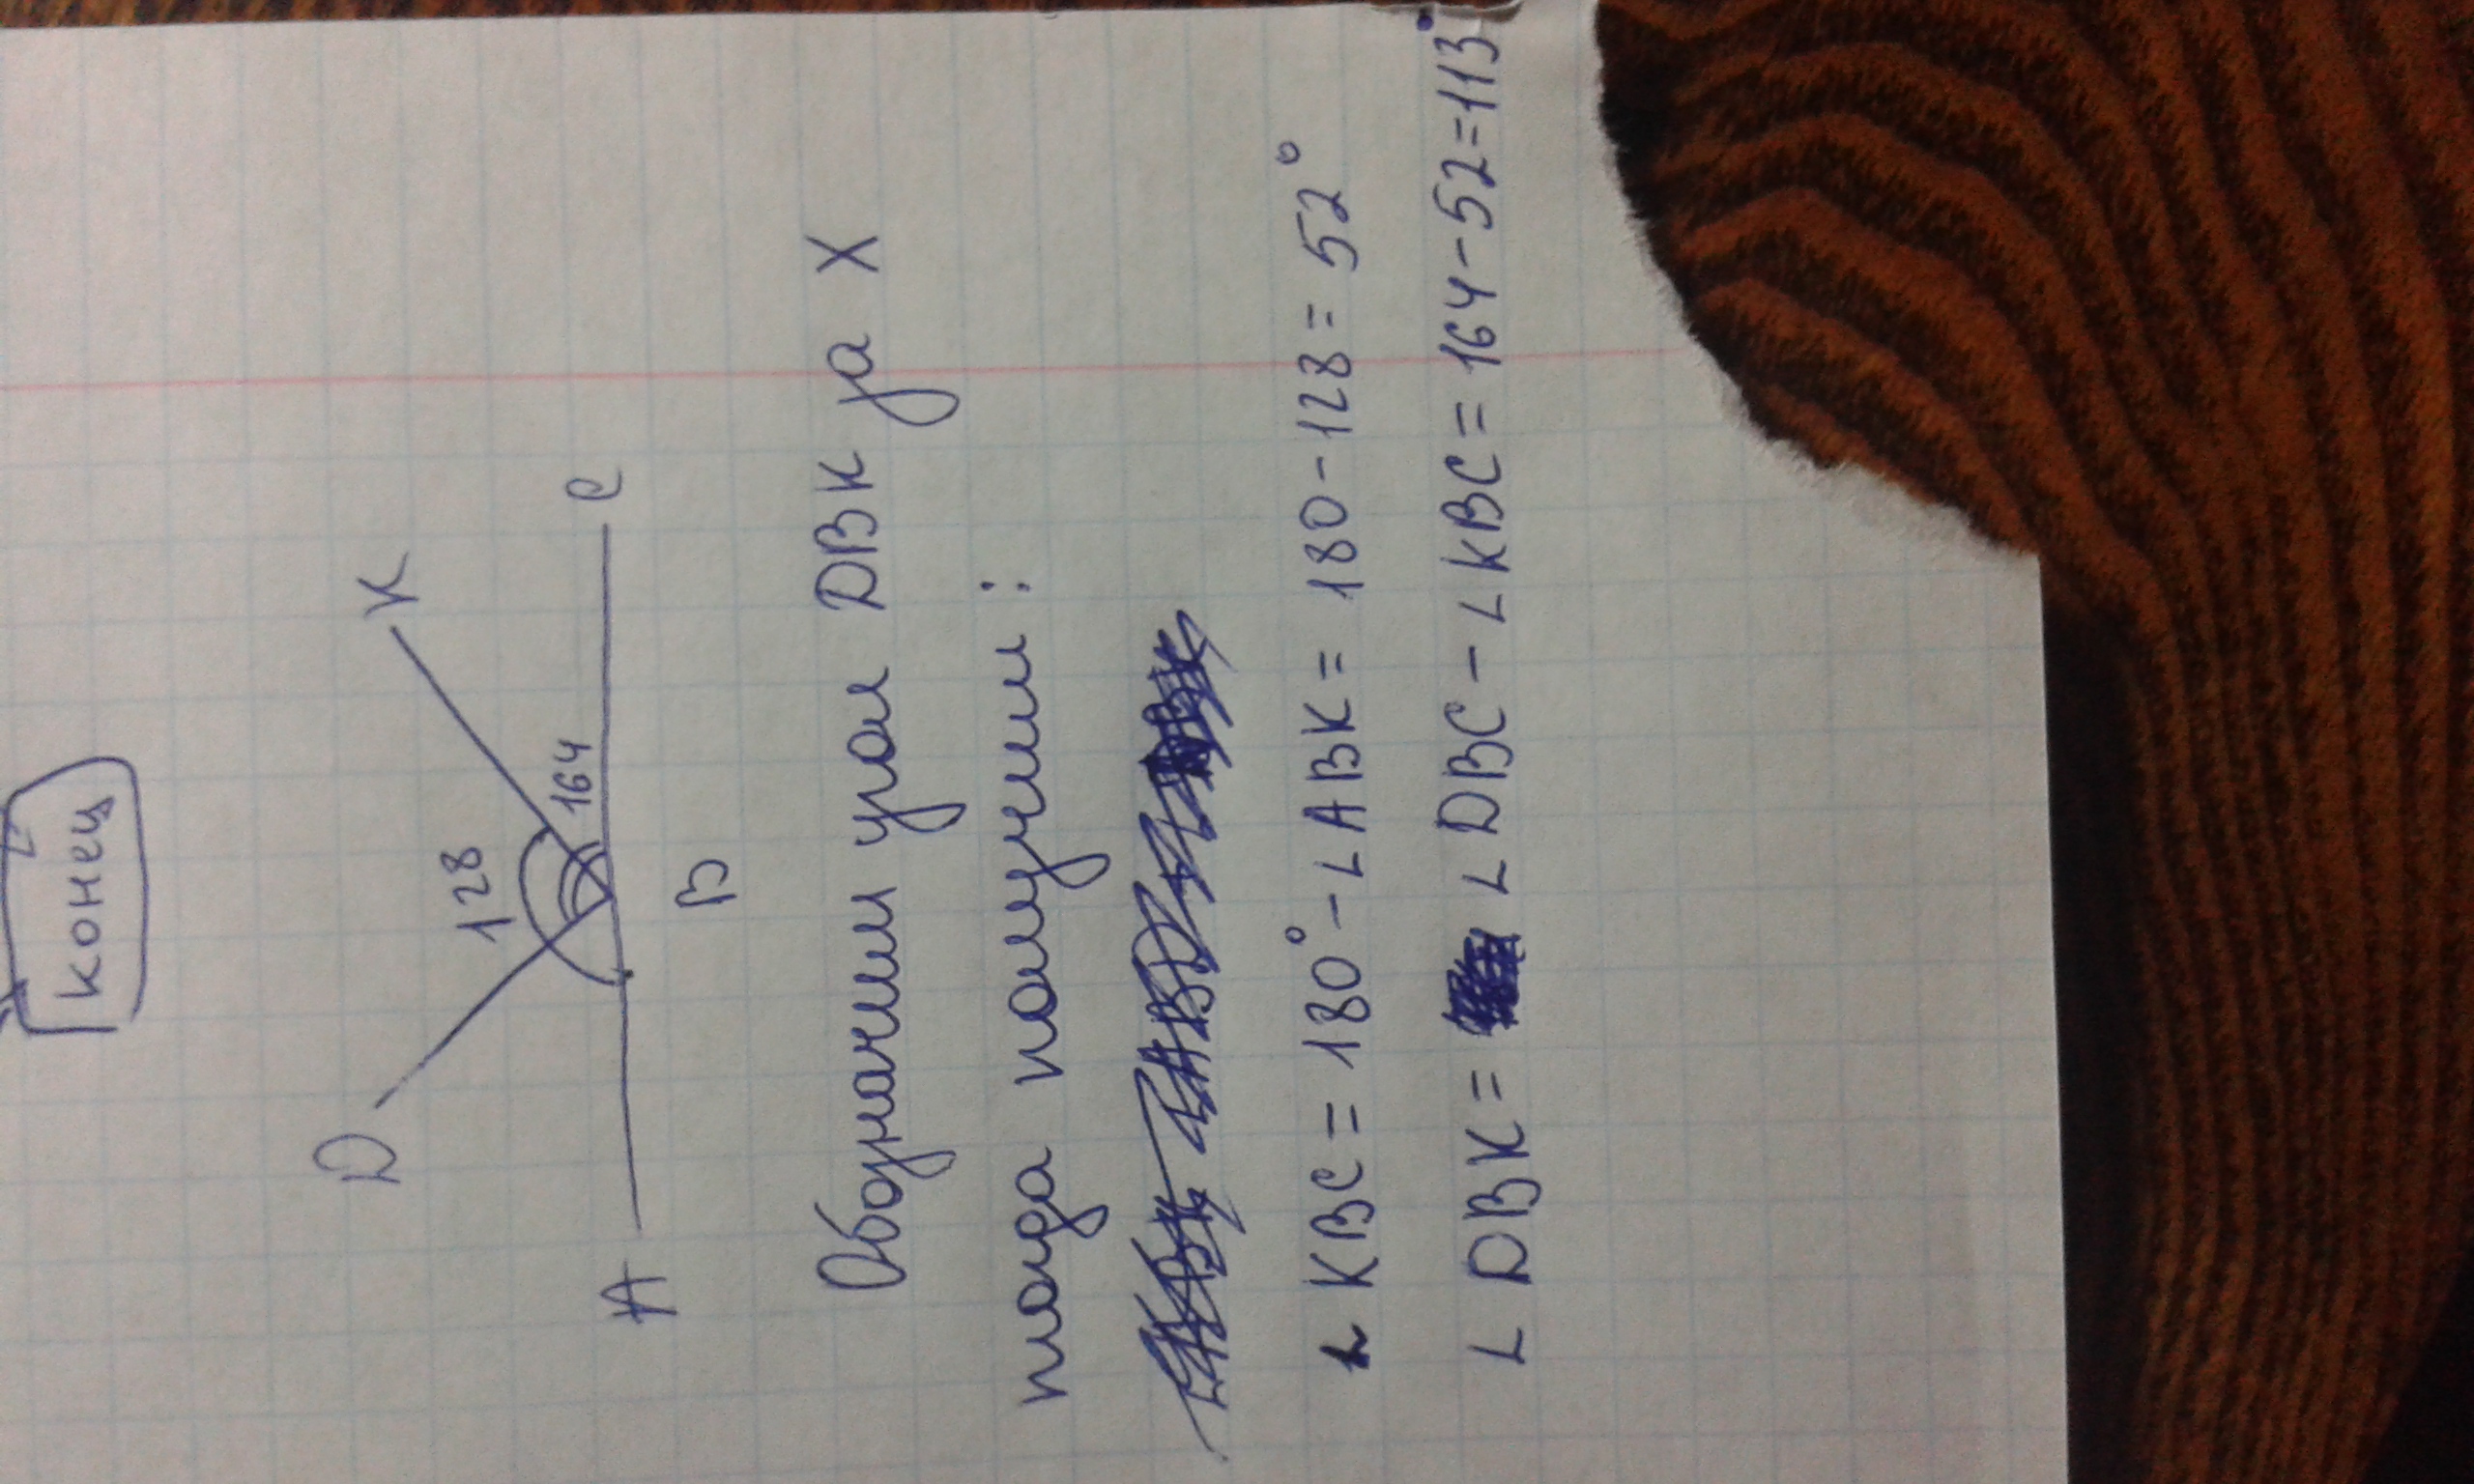 конец
D
K
128
164
A
B
C
Обозначим угол DBK за X
тогда получим:
∠KBC = 180° - ∠ABK = 180 - 128 = 52°
∠DBK = ∠DBC - ∠KBC = 164 - 52 = 113°